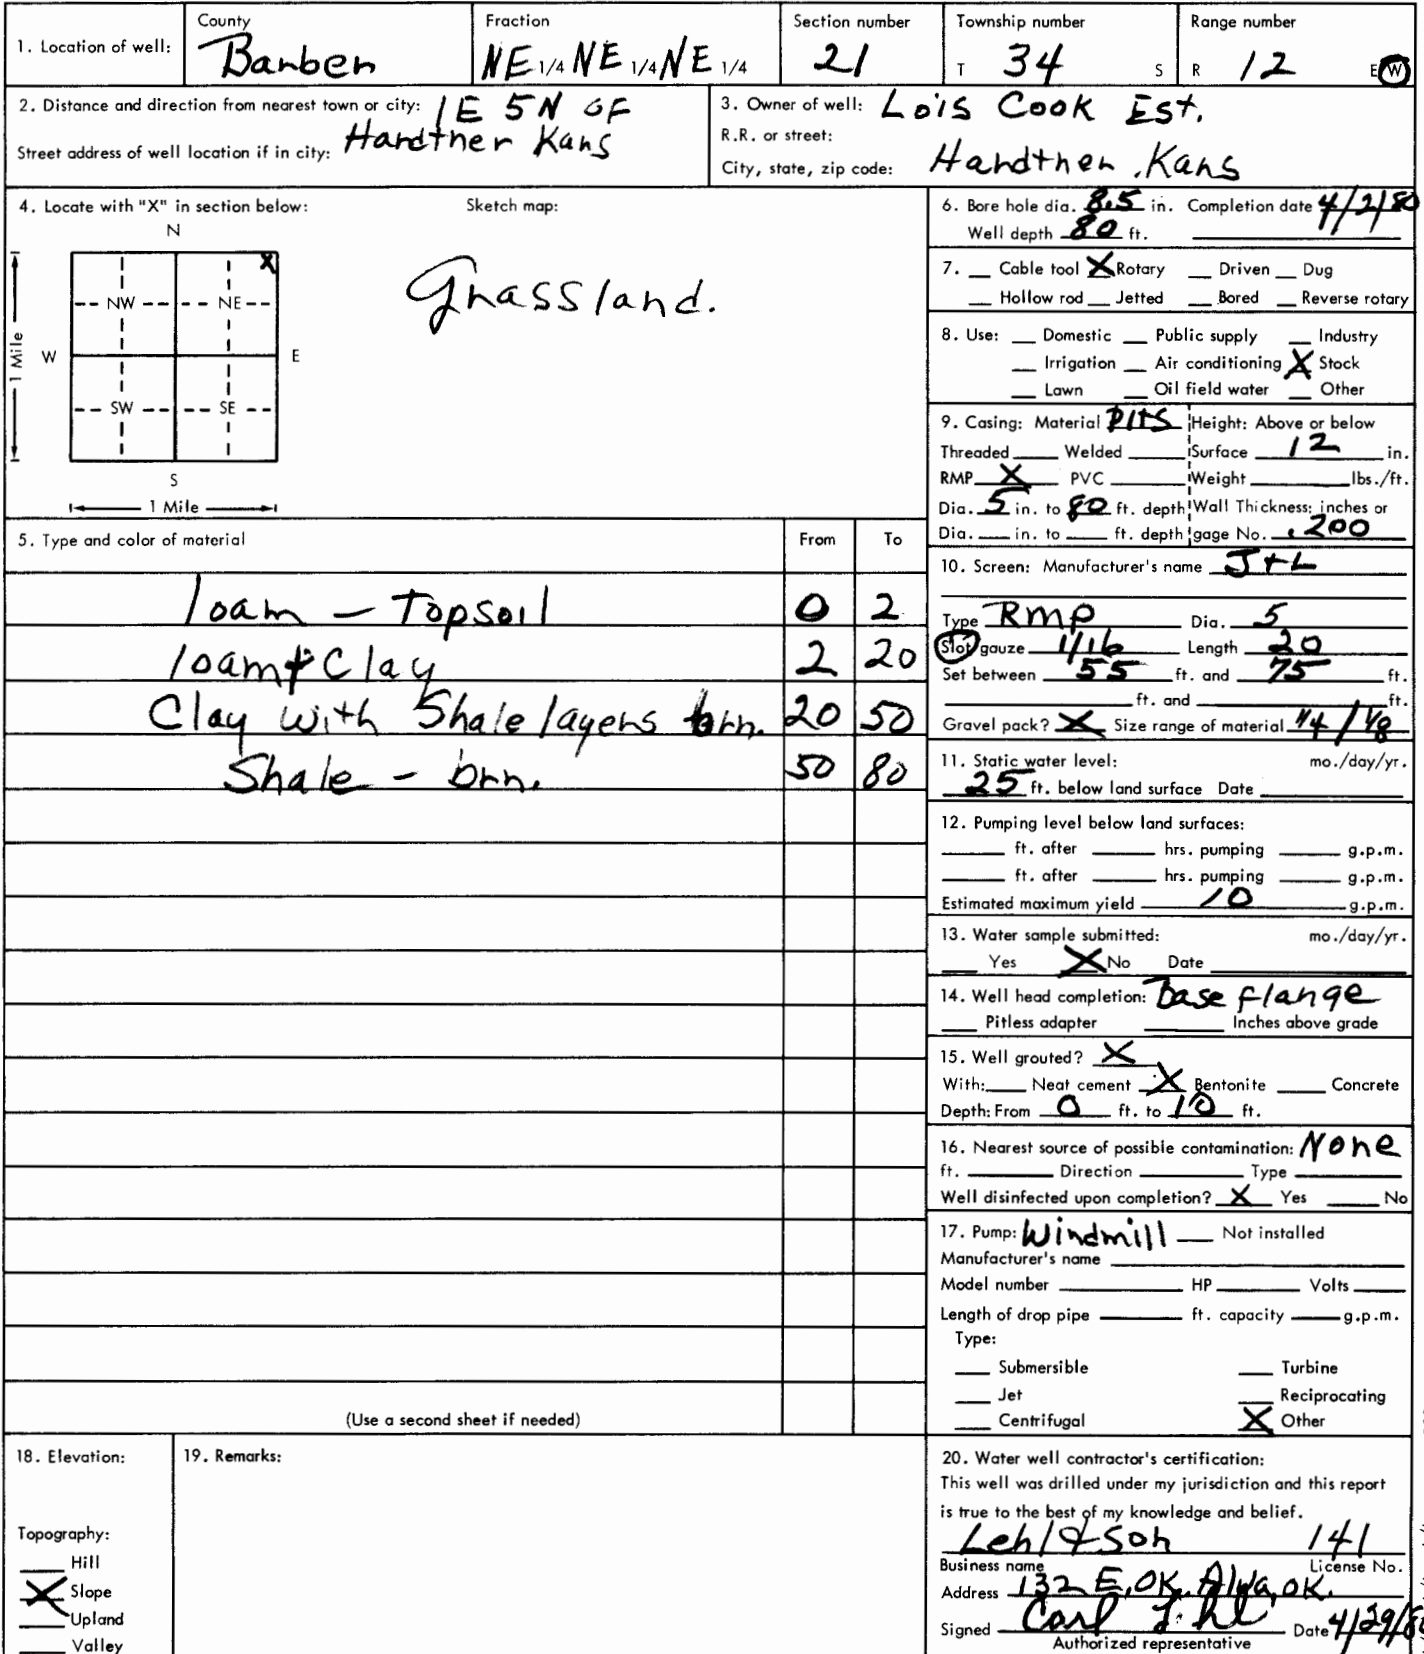 1. Location of well:
County
Barber
Fraction
NE 1/4 NE 1/4 NE 1/4
Section number
21
Township number
T 34 S
Range number
R 12 E W
2. Distance and direction from nearest town or city: 1E 5N OF
Hardtner Kans
Street address of well location if in city:
3. Owner of well: Lois Cook Est.
R.R. or street:
City, state, zip code: Hardtner, Kans
4. Locate with "X" in section below:
Sketch map:
N
X
NW NE
W E
1 Mile
SW SE
S
1 Mile
Grassland.
5. Type and color of material From To
loam - Topsoil 0 2
loam + Clay 2 20
Clay with Shale layers brn. 20 50
Shale - brn. 50 80
(Use a second sheet if needed)
6. Bore hole dia. 8.5 in. Completion date 4/2/80
Well depth 80 ft.
7. __ Cable tool X Rotary __ Driven __ Dug
__ Hollow rod __ Jetted __ Bored __ Reverse rotary
8. Use: __ Domestic __ Public supply __ Industry
__ Irrigation __ Air conditioning X Stock
__ Lawn __ Oil field water __ Other
9. Casing: Material Height: Above or below
Threaded ____ Welded ____ Surface 12 in.
RMP X PVC ____ Weight ____ lbs./ft.
Dia. 5 in. to 80 ft. depth Wall Thickness: inches or
Dia. ___ in. to ___ ft. depth gage No. .200
10. Screen: Manufacturer's name J+L
Type RMP Dia. 5
Slot gauze 1/16 Length 20
Set between 55 ft. and 75 ft.
____ ft. and ____ ft.
Gravel pack? X Size range of material 1/4 / 1/8
11. Static water level: mo./day/yr.
25 ft. below land surface Date ____
12. Pumping level below land surfaces:
____ ft. after ____ hrs. pumping ____ g.p.m.
____ ft. after ____ hrs. pumping ____ g.p.m.
Estimated maximum yield 10 g.p.m.
13. Water sample submitted: mo./day/yr.
__ Yes X No Date ____
14. Well head completion: base flange
__ Pitless adapter ____ Inches above grade
15. Well grouted? X
With: ___ Neat cement X Bentonite ___ Concrete
Depth: From 0 ft. to 10 ft.
16. Nearest source of possible contamination: None
ft. ____ Direction ____ Type ____
Well disinfected upon completion? X Yes ___ No
17. Pump: Windmill ___ Not installed
Manufacturer's name ____
Model number ____ HP ___ Volts ___
Length of drop pipe ____ ft. capacity ___ g.p.m.
Type:
__ Submersible __ Turbine
__ Jet __ Reciprocating
__ Centrifugal X Other
18. Elevation:
Topography:
___ Hill
X Slope
___ Upland
___ Valley
19. Remarks:
20. Water well contractor's certification:
This well was drilled under my jurisdiction and this report
is true to the best of my knowledge and belief.
Lehl & Son 141
Business name License No.
Address 132 E. OK. Alva, OK.
Signed Carl Lehl Date 4/29/80
Authorized representative